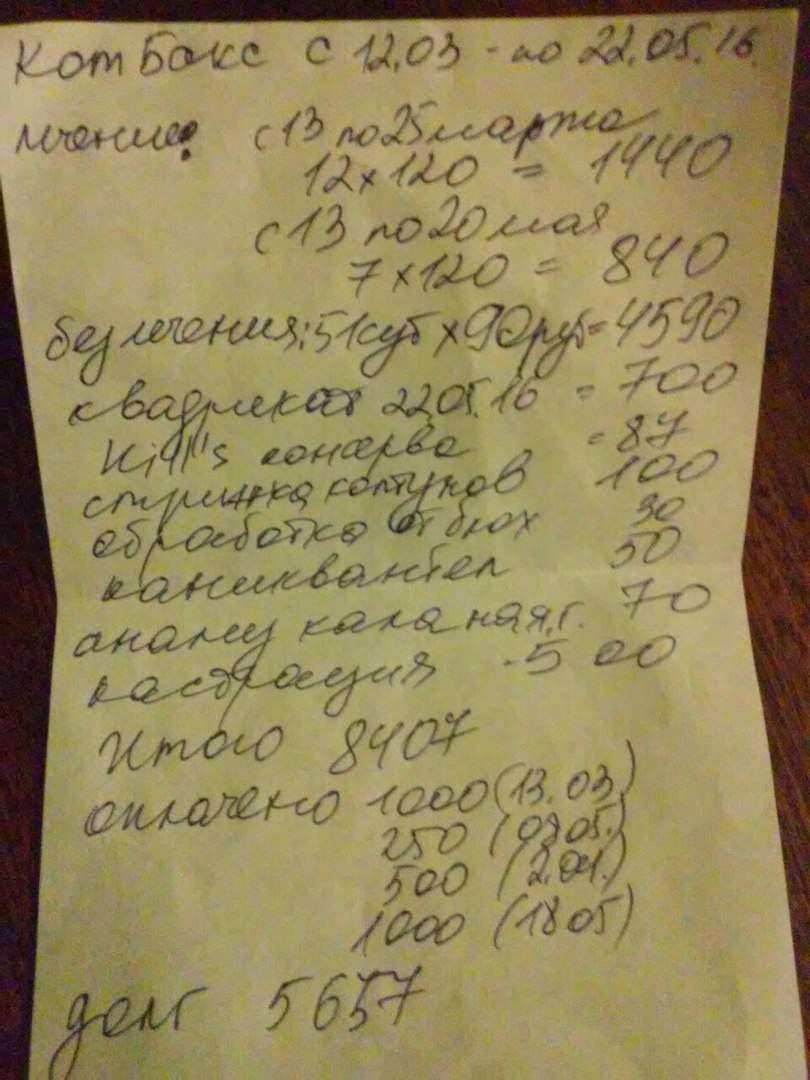 Кот Бокс с 12.03 - по 22.05.16.
лечение: с 13 по 25 марта
12 x 120 = 1440
с 13 по 20 мая
7 x 120 = 840
без лечения: 51сут x 90руб = 4590
квадрикат 22.05.16 = 700
Hill's консерва = 87
стрижка колтунов 100
обработка от блох 30
каниквантел 50
анализ кала на я.г. 70
кастрация - 500
Итого 8407
оплачено 1000 (13.03)
250 (08.05.)
500 (2.04.)
1000 (18.05)
долг 5657